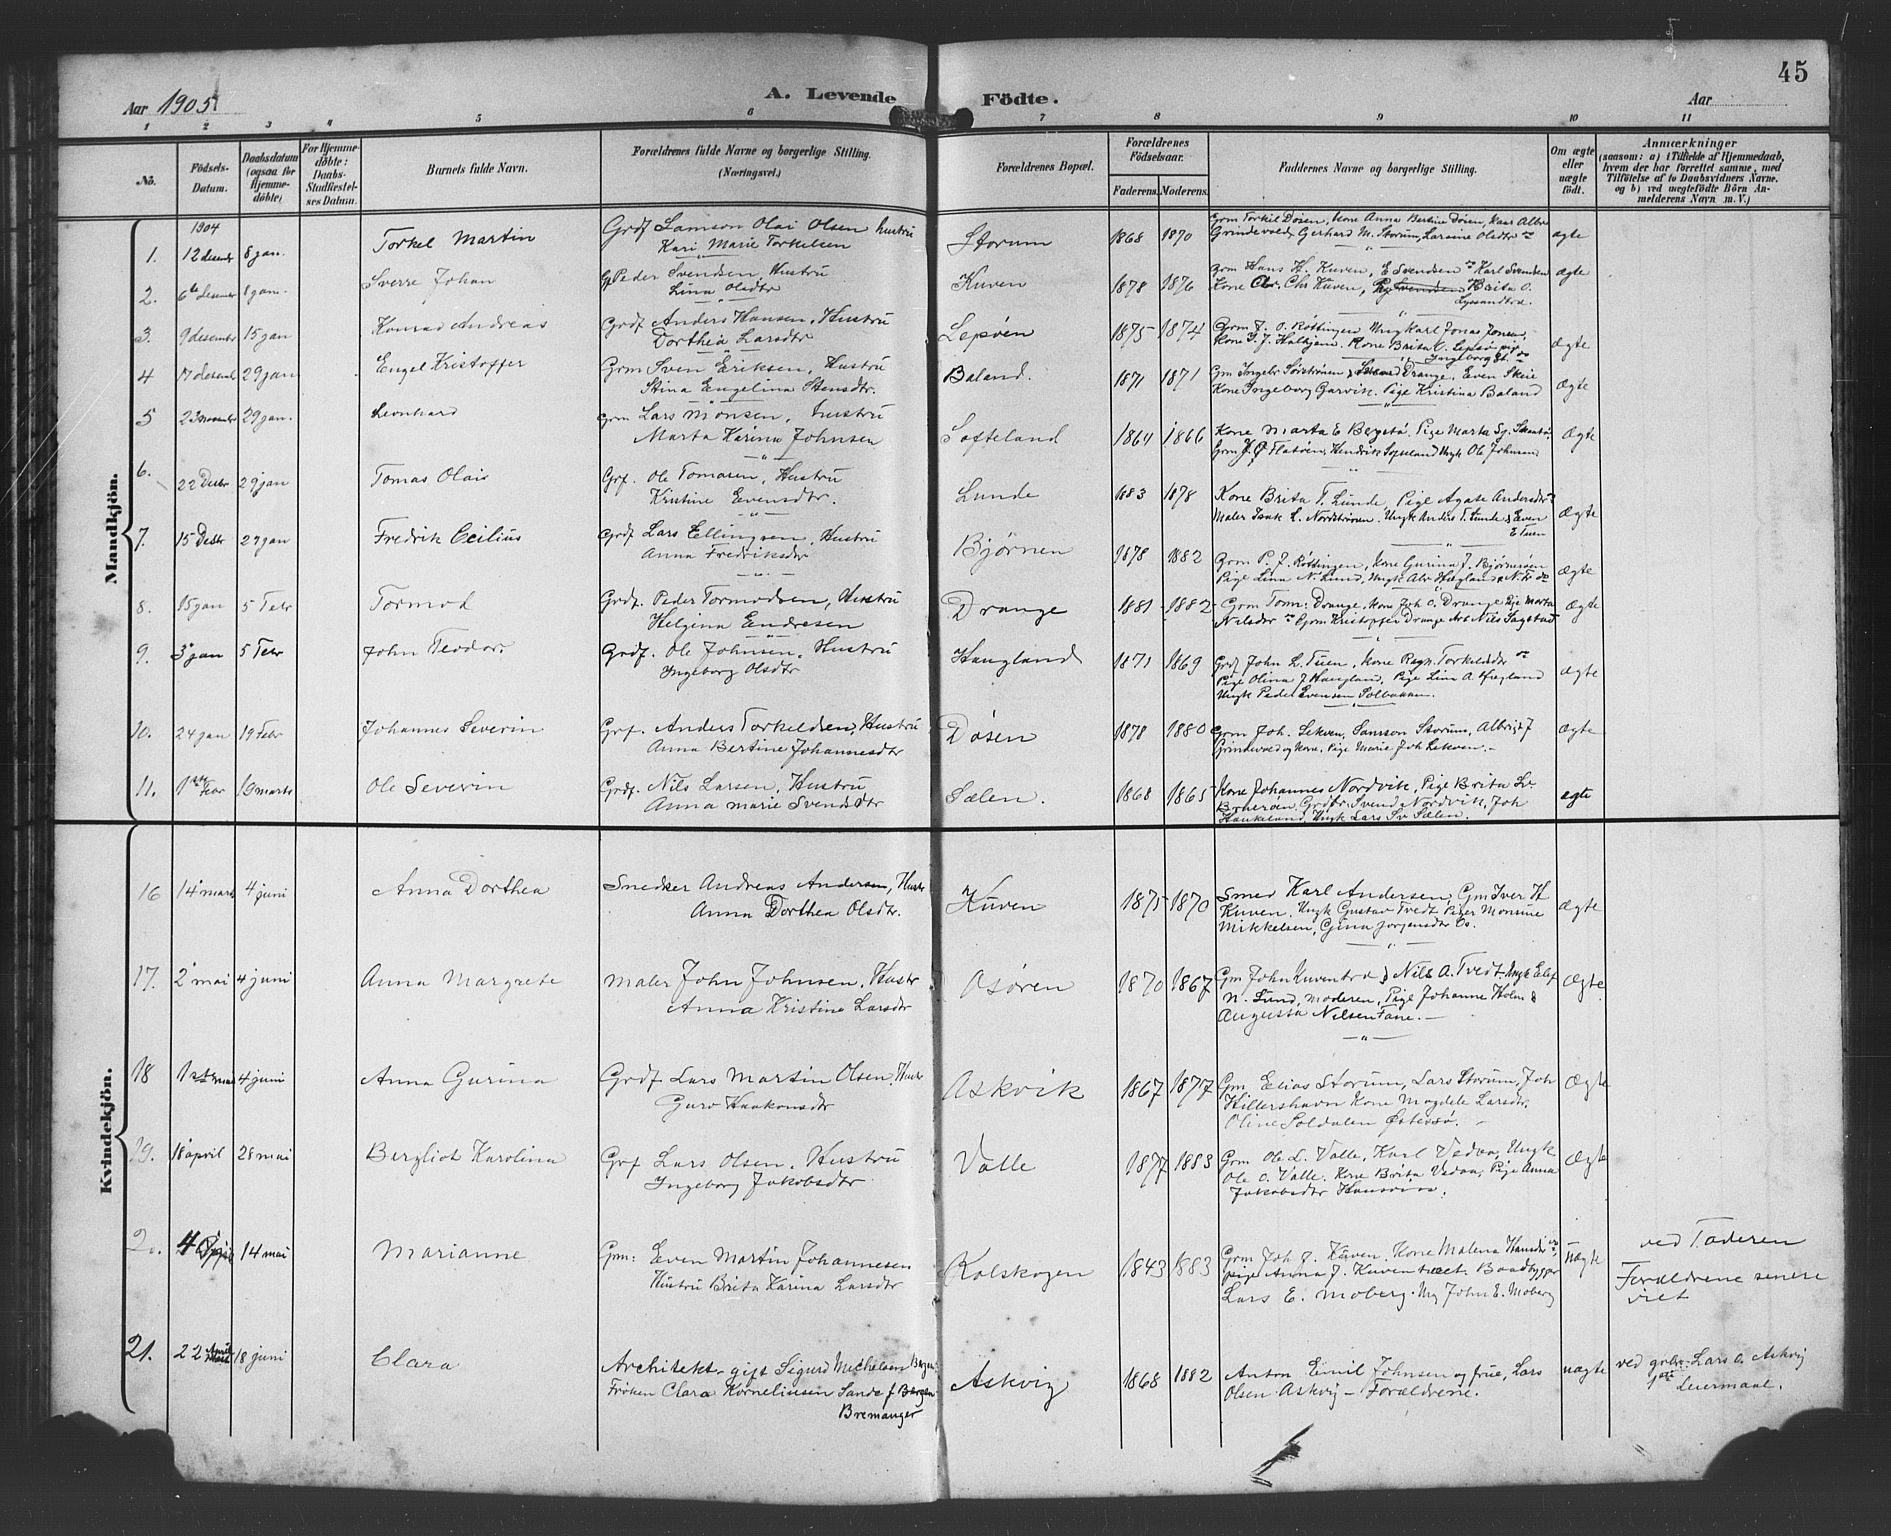 45
Aar 1905
A. Levende Födte.
Aar
1 2 3 4 5 6 7 8 9 10 11
No.
Födsels-Datum.
Daabsdatum (ogsaa for Hjemme-döbte)
For Hjemme-döbte: Daabs-Stadfæstelses Datum.
Barnets fulde Navn.
Forældrenes fulde Navne og borgerlige Stilling. (Næringsvei.)
Forældrenes Bopæl.
Forældrenes Födselsaar.
Faderens. Moderens.
Faddernes Navne og borgerlige Stilling.
Om ægte eller uægte födt.
Anmærkninger
(saasom: a) i Tilfælde af Hjemmedaab,
hvem der har forrettet samme, med
Tilföielse af to Daabsvidners Navne.
og b) ved uægtefödte Börn An-
melderens Navn m. V.)
Mandkjön.
1904
1. 12 desembr 8 jan. Torkel Martin Grdf Samson Olai Olsen hustru
Kari Marie Torkelsen Storum 1868 1870 Grm Torkil Døsen, Kone Anna Bertine Døsen, Karr Albr.
Grindevold, Gerhard M. Storum, Larsine Olsdtr ægte
2. 6te desember 8 jan. Sverre Johan Peder Svendsen, Hustru
Lina Olsdtr Kuven 1878 1876 Grm Hans H. Kuven, E Svendsen Karl Svendsen
Kone Chr. Kuven, Brita O.
Lysandtræ. ægte
3. 9 desembr 15 jan Konrad Andreas Grdf Anders Hansen, Hustru
Dorthea Larsdtr Lepsøen 1875 1874 Grm J. O. Røttingen Ungkarl Jonas Jonsen,
Kone J. J. Halhjem. Kone Brita O. Lepsø pige
Ingeborg ægte
4 17 desembr 29 jan Engel Kristoffer Grm Sven Eriksen, Hustru
Stina Engelina Stensdtr. Baland. 1871 1871 Gm Ingebr Sørstrønen, Drange, Even Skeie
Kone Ingeborg Garvik. Pige Kristina Baland ægte
5 23 november 29 jan. Leonhard Grm Lars Monsen, Hustru
Marta Karina Johnsen Søfteland 1864 1866 Kone Marta E Bergstø, Pige Marta
Grm Flatøen, Hendrik Søfteland Ungk Ole Johnsen ægte
6. 22 Desbr 29 jan Tomas Olais Grf. Ole Tomasen, Hustru
Kristine Evensdtr. Lunde 1883 1878 Kone Brita T. Lunde, Pige Agate Andersdtr
Maler Isak L. Nordstrønen. Ungk Anders T. Lunde & Even
E Tuen ægte
7. 15 Desbr 29 jan Fredrik Cecilius Grdf Lars Ellingsen, Hustru
Anna Fredriksdtr Bjørnen 1878 1882 Grm P. J. Røttingen, Kone Gurina J. Bjørnesen
Pige Lina N. Lund, Ungk Alv Hægland ægte
8. 15 jan 5 Febr Tormod Grdf. Peder Tormodsen, Hustru
Helgena Endresen Drange 1881 1882 Grm Tom: Drange, Kone Joh O. Drange Pige Marta
Nilsdtr Grm Kristoffer Drange Nils Sagstad ægte
9. 3 jan 5 Febr John Teodor. Grdf. Ole Johnsen, Hustru
Ingeborg Olsdtr Haugland 1871 1869 Grdf John L. Tuen, Kone Ragn. Torkildsdtr
Pige Olina J Haugland, Pige Lina A. Hægland
Ungk Peder Evensen Solbakken. ægte
10. 24 jan 19 Febr Johannes Severin Grf. Anders Torkeldsen, Hustru
Anna Bertine Johannesdtr Døsen 1878 1880 Grm Joh. Lekven, Samson Storum, Albrigt J
Grindevold og kone, Pige Marie Joh Lekven. ægte
11. 1ste Febr 19 marts Ole Severin Grdf. Nils Larsen, Hustru
Anna Marie Svendsdtr Sælen. 1868 1865 Kone Johannes Nordvik, Pige Brita L.
Grdbr. Svend Nordvik, Joh
Haukeland, Ungk Lars Sv Sælen. ægte
Kvindekjön.
16 14 marts 4 juni Anna Dorthea Snedker Andreas Andersen, Hustr
Anna Dorthea Olsdtr. Kuven 1875 1870 Smed Karl Andersen, Gm Iver H
Kuven, Ungk Gustav Tvedt Piger Monsine
Mikkelsen, Gina Jørgensdtr Os. ægte
17. 2 mai 4 juni Anna Margrete Maler John Johnsen, Hustr
Anna Kristine Larsdtr Osøren 1870 1867 Gm John Kuventræ & Nils A. Tvedt Ungk Elef
N. Lund, Moderen, Pige Johanne Holm &
Augusta Nilsen Fane. ægte
18 1ste mai 4 juni Anna Gurina Grdf Lars Martin Olsen, Hustr
Guro Haakonsdtr Askvik 1867 1877 Gm Elias Storum, Lars Storum, Joh
Hillershavn Kone Magdele Larsdtr,
Oline Soldalen Østessø. ægte
19. 18 april 28 mai Bergliot Karolina Grf Lars Olsen, Hustru
Ingeborg Jakobsdtr Valle 1877 1883 Grm Ole L. Valle, Karl Vedaa, Ungk
Ole O. Valle. Kone Brita Vedaa, Pige Anna
Jakobsdtr ægte
20. 4 April 14 mai Marianne Grm: Even Martin Johannesen
Hustru Brita Karina Larsdtr Kolskogen 1843 1883 Grm Joh J. Kuven, Kone Malena Hansdr
pige Anna J. Kuventræet Baadbygger
Lars E. Moberg. Ung John E. Moberg uægte ved Faderen
Forældrene senere
viet
21. 22 April 18 juni Clara Architekt gift Sigurd Michelsen Bergen:
Frøken Clara Korneliusen Sande f Bergen
Bremanger Askvig 1868 1882 Anton Emil Johnsen og frue, Lars
Olsen Askvig – Forældrene. uægte ved grbr. Lars O. Askvig
1ste Leiermaal.